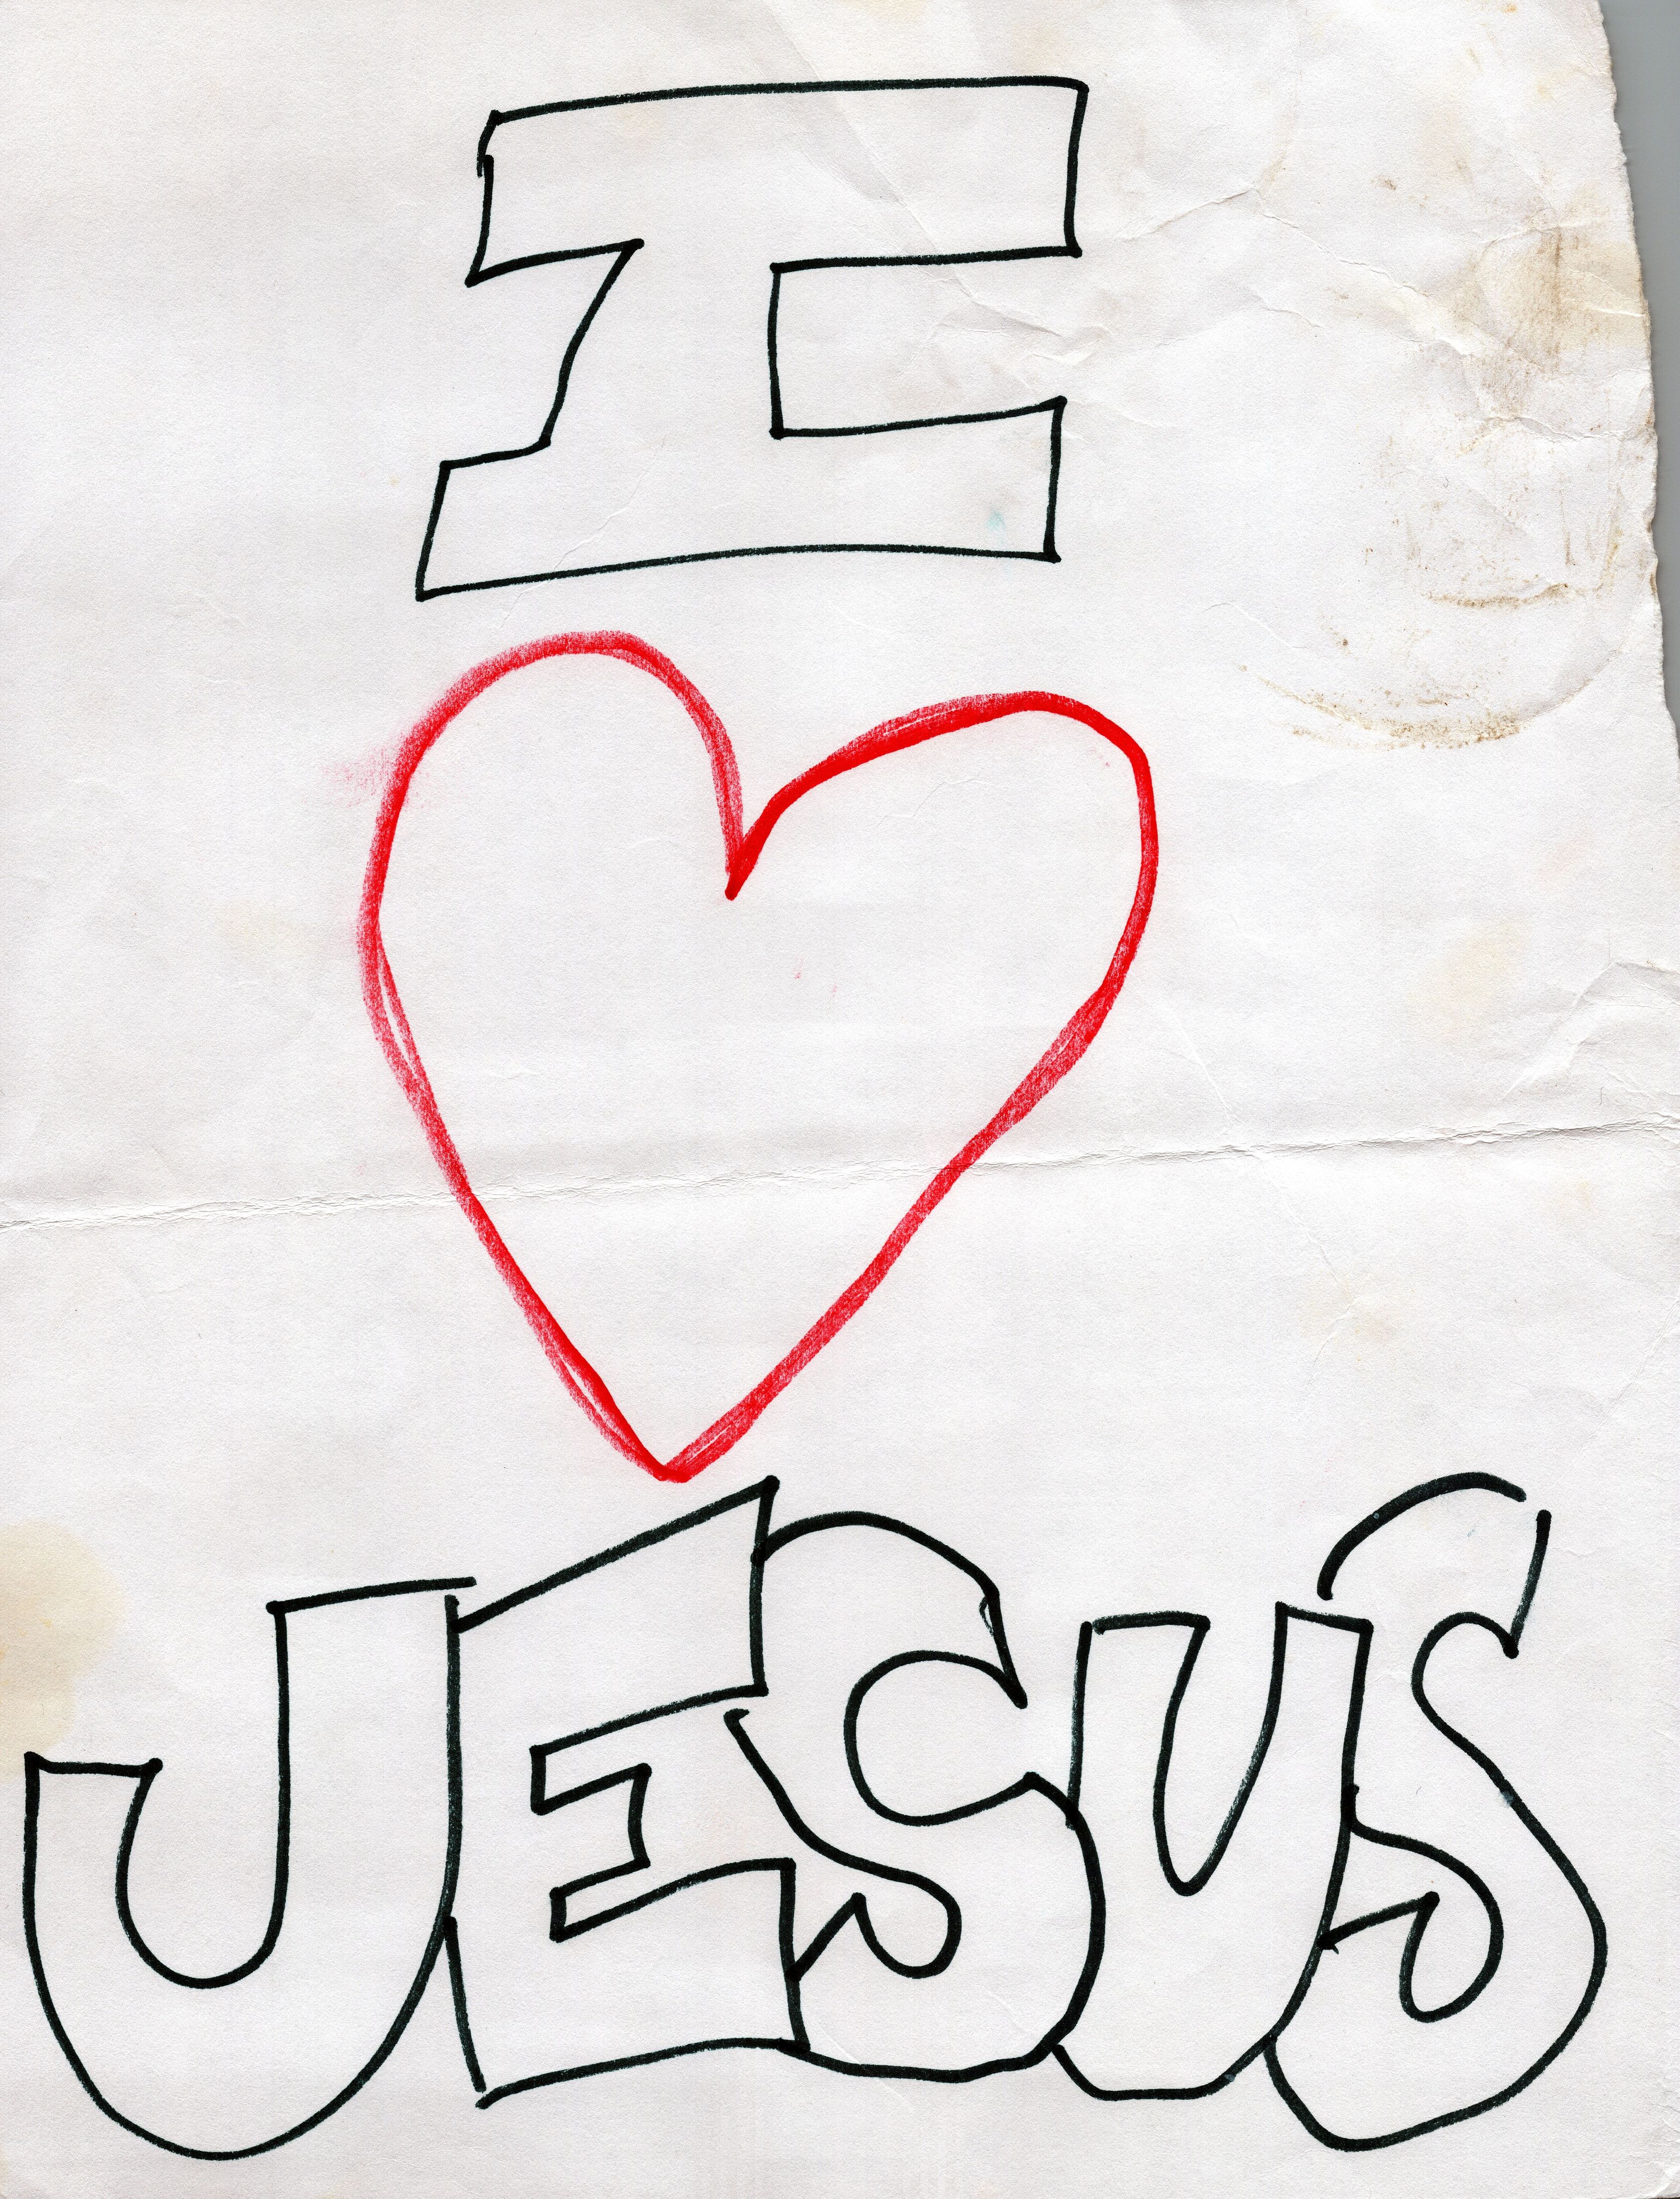 I
♥
JESUS